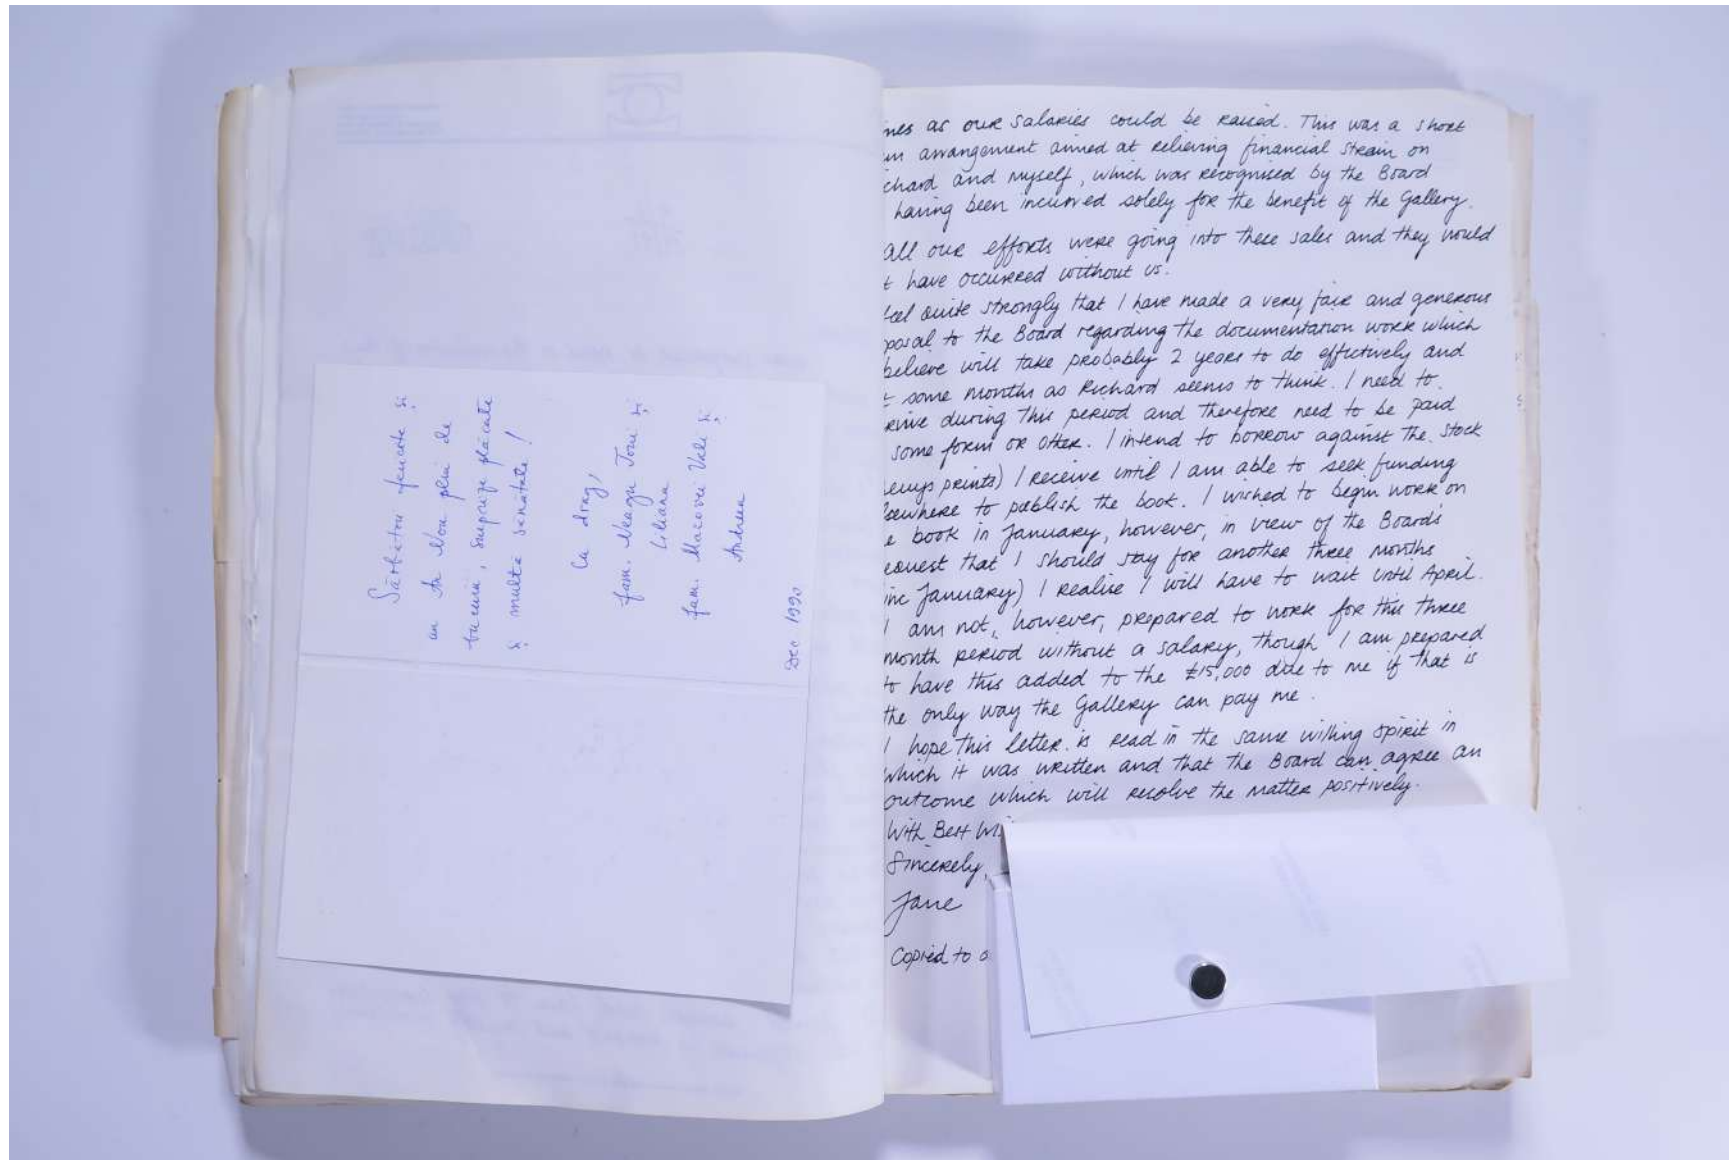 Sărbători fericite și
un An Nou plin de
bucurii, surprize plăcute
și multă sănătate!
Cu drag,
fam. Neagu Toni și
Liliana
fam. Macovei Vali și
Andreea
Dec 1990
nes as our salaries could be raised. This was a short
m arrangement aimed at relieving financial strain on
chard and myself, which was recognised by the Board
having been incurred solely for the benefit of the Gallery.
All our efforts were going into these sales and they would
t have occurred without us.
feel quite strongly that I have made a very fair and generous
posal to the Board regarding the documentation work which
believe will take probably 2 years to do effectively and
t some months as Richard seems to think. I need to
rvive during this period and therefore need to be paid
some form or other. I intend to borrow against the stock
prints) I receive until I am able to seek funding
sewhere to publish the book. I wished to begin work on
e book in January, however, in view of the Board's
equest that I should stay for another three months
inc January) I realise I will have to wait until April.
I am not, however, prepared to work for this three
month period without a salary, though I am prepared
to have this added to the £15,000 due to me if that is
the only way the Gallery can pay me.
I hope this letter is read in the same willing spirit in
which it was written and that the Board can agree an
outcome which will resolve the matter positively.
With Best Wi
Sincerely,
Jane
Copied to